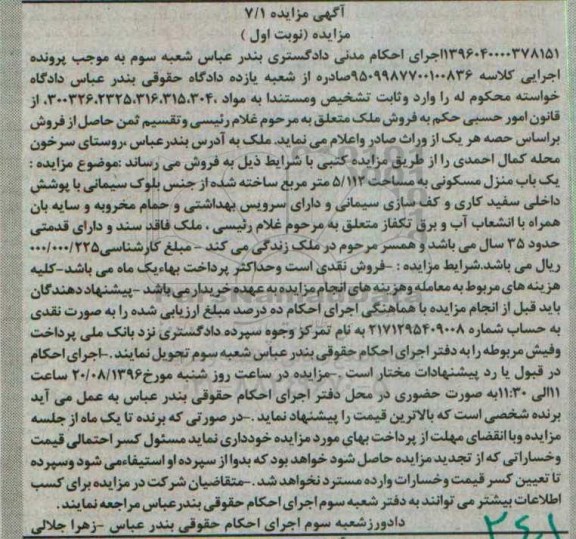 آگهی مزایده ۷/۱
مزایده (نوبت اول )
۱۳۹۶۰۴۰۰۰۰۳۷۸۱۵۱اجرای احکام مدنی دادگستری بندر عباس شعبه سوم به موجب پرونده
اجرایی کلاسه ۹۵۰۹۹۸۷۷۰۰۱۰۰۸۳۶صادره از شعبه یازده دادگاه حقوقی بندر عباس دادگاه
خواسته محکوم له را وارد وثابت تشخیص ومستندا به مواد ،۳۰۰،۳۲۶،۲۳۲۵،۳۱۶،۳۱۵،۳۰۴، از
قانون امور حسبی حکم به فروش ملک متعلق به مرحوم غلام رئیسی وتقسیم ثمن حاصل از فروش
براساس حصه هر یک از وراث صادر واعلام می نماید. ملک به آدرس بندرعباس ،روستای سرخون
محله کمال احمدی را از طریق مزایده کتبی با شرایط ذیل به فروش می رساند :موضوع مزایده :
یک باب منزل مسکونی به مساحت ۵/۱۱۳ متر مربع ساخته شده از جنس بلوک سیمانی با پوشش
داخلی سفید کاری و کف سازی سیمانی و دارای سرویس بهداشتی و حمام مخروبه و سایه بان
همراه با انشعاب آب و برق تکفاز متعلق به مرحوم غلام رئیسی ، ملک فاقد سند و دارای قدمتی
حدود ۳۵ سال می باشد و همسر مرحوم در ملک زندگی می کند - مبلغ کارشناسی۰۰۰/۰۰۰/۲۲۵
ریال می باشد.شرایط مزایده : -فروش نقدی است وحداکثر پرداخت بهاءیک ماه می باشد-کلیه
هزینه های مربوط به معامله وهزینه های انجام مزایده به عهده خریدار می باشد - پیشنهاد دهندگان
باید قبل از انجام مزایده با هماهنگی اجرای احکام ده درصد مبلغ ارزیابی شده را به صورت نقدی
به حساب شماره ۲۱۷۱۲۹۵۴۰۹۰۰۸ به نام تمرکز وجوه سپرده دادگستری نزد بانک ملی پرداخت
وفیش مربوطه را به دفتر اجرای احکام حقوقی بندر عباس شعبه سوم تحویل نمایند. -اجرای احکام
در قبول یا رد پیشنهادات مختار است . -مزایده در ساعت روز شنبه مورخ۲۰/۰۸/۱۳۹۶ ساعت
۱۱الی ۱۱:۳۰به صورت حضوری در محل دفتر اجرای احکام حقوقی بندر عباس به عمل می آید
برنده شخصی است که بالاترین قیمت را پیشنهاد نماید .-در صورتی که برنده تا یک ماه از جلسه
مزایده وبا انقضای مهلت از پرداخت بهای مورد مزایده خودداری نماید مسئول کسر احتمالی قیمت
وخساراتی که از تجدید مزایده حاصل شود خواهد بود که بدوا از سپرده او استیفاءمی شود وسپرده
تا تعیین کسر قیمت وخسارات وارده مسترد نخواهد شد .-متقاضیان شرکت در مزایده برای کسب
اطلاعات بیشتر می توانند به دفتر شعبه سوم اجرای احکام حقوقی بندر عباس مراجعه نمایند .
دادورزشعبه سوم اجرای احکام حقوقی بندر عباس -زهرا جلالی